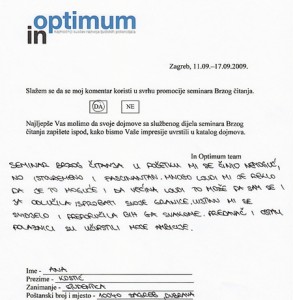 optimum
in
Zagreb, 11.09.-17.09.2009.
Slažem se da se moj komentar koristi u svrhu promocije seminara Brzog čitanja.
DA NE
Najljepše Vas molimo da svoje dojmove sa službenog dijela seminara Brzog
čitanja zapišete ispod, kako bismo Vaše impresije uvrstili u katalog dojmova.
In Optimum team
SEMINAR BRZOG ČITANJA U POČETKU MI SE ČINIO NEMOGUĆ,
NO ISTOVREMENO I FASCINANTAN. MNOGO LJUDI MI JE REKLO
DA ĆE TO MOGUĆE I DA VEĆINA LJUDI TO MOŽE PA SAM SE I
JA ODLUČILA ISPROBATI SVOJE GRANICE.
SVIDJELO I PREPORUČILA BIH GA SVAKOME. PREDAVAČ I OSTALI
POLAZNICI SU UČVRSTILI MOJE AMBICIJE.
Ime - ANA
Prezime - KOSTIĆ
Zanimanje - STUDENTICA
Poštanski broj i mjesto - 10040 ZAGREB, DUBRAVA